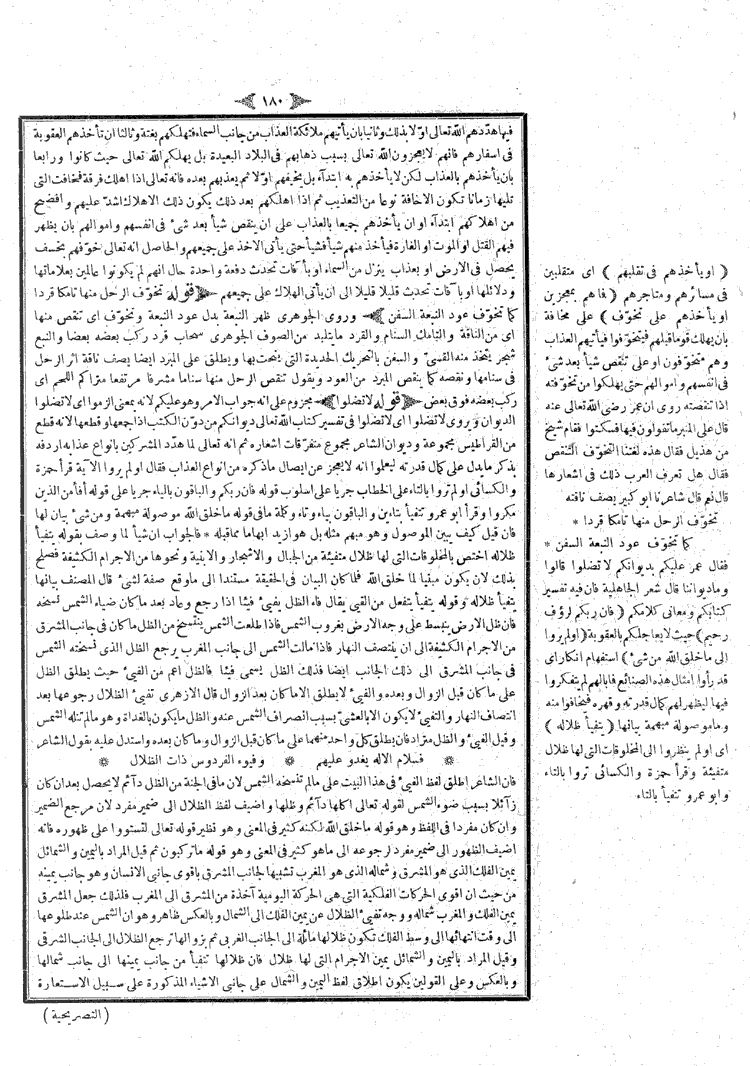 ١٨٠
فيها هدّدهم الله تعالى اوّلا بذلك وثانيا بان يأتيهم ملائكة العذاب من جانب السماء فتهلكهم بغتة وثالثا ان تأخذهم العقوبة
فى اسفارهم فانهم لا يعجزون الله تعالى بسبب ذهابهم فى البلاد البعيدة بل يهلكهم الله تعالى حيث كانوا ورابعا
بان يأخذهم بالعذاب لكن لا يأخذهم به ابتدآء بل يخيفهم اوّلا ثم يعذبهم بعده فانه تعالى اذا اهلك فرقة فخافت التى
تليها زمانا تكون الاخافة نوعا من التعذيب ثم اذا اهلكهم بعد ذلك يكون ذلك الاهلاك اشد عليهم وافضح
من اهلاكهم ابتدآء او ان يأخذهم جميعا بالعذاب على ان ينقص شيأ بعد شئ فى انفسهم واموالهم بان يظهر
فيهم القتل او الموت او الغارة فيأخذ منهم شيأ فشيأ حتى يأتى الاخذ على جميعهم والحاصل انه تعالى خوّفهم بخسف
يحصل فى الارض او بعذاب ينزل من السماء او بآفات تحدث دفعة واحدة حال انهم لم يكونوا عالمين بعلاماتها
ودلائلها او بآفات تحدث قليلا قليلا الى ان يأتى الهلاك على جميعهم ﴿قوله تخوّف الرحل منها تامكا قردا
كما تخوّف عود النبعة السفن﴾ وروى الجوهرى ظهر النبعة بدل عود النبعة وتخوّف اى تنقص منها
اى من الناقة والتامك السنام والقرد ما يتلبد من الصوف الجوهرى سحاب قرد ركب بعضه بعضا والنبع
شجر يتخذ منه القسىّ والسفن بالتحريك الحديدة التى ينحت بها ويطلق على المبرد ايضا يصف ناقة اثر الرحل
فى سنامها ونقصه كما ينقص المبرد من العود ويقول تنقص الرحل منها سناما مشرفا مرتفعا متراكم اللحم اى
ركب بعضه فوق بعض ﴿قوله لا تضلوا﴾ مجزوم على انه جواب الامر وهو عليكم لانه بمعنى الزموا اى لا تضلوا
الديوان وروى لا تضلوا اى لا تضلوا فى تفسير كتاب الله تعالى ديوانكم من دوّن الكتب اذا جمعها وقطعها لانه قطع
من القراطيس مجموعة وديوان الشاعر مجموع متفرّقات اشعاره ثم انه تعالى لما هدّد المشركين بانواع عذابه اردفه
بذكر ما يدل على كمال قدرته ليعلموا انه لا يعجز عن ايصال ما ذكره من انواع العذاب فقال او لم يروا الآية قرأ حمزة
والكسائى او لم تروا بالتاء على الخطاب جريا على اسلوب قوله فان ربكم والباقون بالياء جريا على قوله أفأمن الذين
مكروا وقرأ ابو عمرو تتفيأ بتاءين والباقون بياء وتاء وكلمة ما فى قوله ما خلق الله موصولة مبهمة ومن شئ بيان لها
فان قيل كيف يبين الموصول وهو مبهم مثله بل هو ازيد ابهاما مما قبله * فالجواب ان شيأ لما وصف بقوله يتفيأ
ظلاله اختص بالمخلوقات التى لها ظلال متفيئة من الجبال والاشجار والابنية ونحوها من الاجرام الكثيفة فصلح
بذلك لان يكون مبيّنا لما خلق الله فلما كان البيان فى الحقيقة مستندا الى ما وقع صفة لشئ قال المصنف بيانها
يتفيأ ظلاله وقوله يتفيأ يتفعل من الفيئ يقال فاء الظل يفيئ فيئا اذا رجع وعاد بعد ما كان ضياء الشمس نسخه
فان ظل الارض ينبسط على وجه الارض بغروب الشمس فاذا طلعت الشمس ينتسخ من الظل ما كان فى جانب المشرق
من الاجرام الكثيفة الى ان ينتصف النهار فاذا مالت الشمس الى جانب المغرب يرجع الظل الذى نسخته الشمس
فى جانب المشرق الى ذلك الجانب ايضا فذلك الظل يسمى فيئا فالظل اعم من الفيئ حيث يطلق الظل
على ما كان قبل الزوال وبعده والفيئ لا يطلق الا ما كان بعد الزوال قال الازهرى تفيئ الظلال رجوعها بعد
انتصاف النهار والتفيئ لا يكون الا بالعشىّ بسبب انصراف الشمس عنه والظل ما يكون بالغداة وهو ما لم تنله الشمس
وقيل الفيئ والظل مترادفان يطلق كل واحد منهما على ما كان قبل الزوال وما كان بعده واستدل عليه بقول الشاعر
فسلام الاله يغدو عليهم * وفيوء الفردوس ذات الظلال *
فان الشاعر اطلق لفظ الفيئ فى هذا البيت على ما لم تنسخه الشمس لان ما فى الجنة من الظل دآئم لا يحصل بعد ان كان
زآئلا بسبب ضوء الشمس لقوله تعالى اكلها دآئم وظلها واضيف لفظ الظلال الى ضمير مفرد لان مرجع الضمير
وان كان مفردا فى اللفظ وهو قوله ما خلق الله لكنه كثير فى المعنى وهو نظير قوله تعالى لتستووا على ظهوره فانه
اضيف الظهور الى ضمير مفرد لرجوعه الى ما هو كثير فى المعنى وهو قوله ما تركبون ثم قيل المراد باليمين والشمائل
يمين الفلك الذى هو المشرق وشماله الذى هو المغرب تشبيها لجانب المشرق باقوى جانبى الانسان وهو جانب يمينه
من حيث ان اقوى الحركات الفلكية التى هى الحركة اليومية آخذة من المشرق الى المغرب فلذلك جعل المشرق
يمين الفلك والمغرب شماله ووجه تفيئ الظلال عن يمين الفلك الى الشمال وبالعكس ظاهر وهو ان الشمس عند طلوعها
الى وقت انتهائها الى وسط الفلك تكون ظلالها مائلة الى الجانب الغربى ثم بزوالها ترجع الظلال الى الجانب الشرقى
وقيل المراد باليمين والشمائل يمين الاجرام التى لها ظلال فان ظلالها تتفيأ من جانب يمينها الى جانب شمالها
وبالعكس وعلى القولين يكون اطلاق لفظ اليمين والشمال على جانبى الاشياء المذكورة على سبيل الاستعارة
(التصريحية)
(او يأخذهم فى تقلبهم) اى متقلبين
فى مسائرهم ومتاجرهم (فما هم بمعجزين
او يأخذهم على تخوّف) على مخافة
بان يهلك قوما قبلهم فيتخوّفوا فيأتيهم العذاب
وهم متخوّفون او على تنقص شيأ بعد شئ
فى انفسهم واموالهم حتى يهلكوا من تخوّفته
اذا تنقصته روى ان عمر رضى الله تعالى عنه
قال على المنبر ما تقولون فيها فسكتوا فقام شيخ
من هذيل فقال هذه لغتنا التخوّف التنقص
فقال هل تعرف العرب ذلك فى اشعارها
قال نعم قال شاعرنا ابو كبير يصف ناقته
تخوّف الرحل منها تامكا قردا *
كما تخوّف عود النبعة السفن *
فقال عمر عليكم بديوانكم لا تضلوا قالوا
وما ديواننا قال شعر الجاهلية فان فيه تفسير
كتابكم ومعانى كلامكم (فان ربكم لرؤف
رحيم) حيث لا يعاجلكم بالعقوبة (اولم يروا
الى ما خلق الله من شئ) استفهام انكار اى
قد رأوا امثال هذه الصنائع فما بالهم لم يتفكروا
فيها ليظهر لهم كمال قدرته وقهره فيخافوا منه
وما موصولة مبهمة بيانها (يتفيأ ظلاله)
اى او لم ينظروا الى المخلوقات التى لها ظلال
متفيئة وقرأ حمزة والكسائى تروا بالتاء
وابو عمرو تتفيأ بالتاء